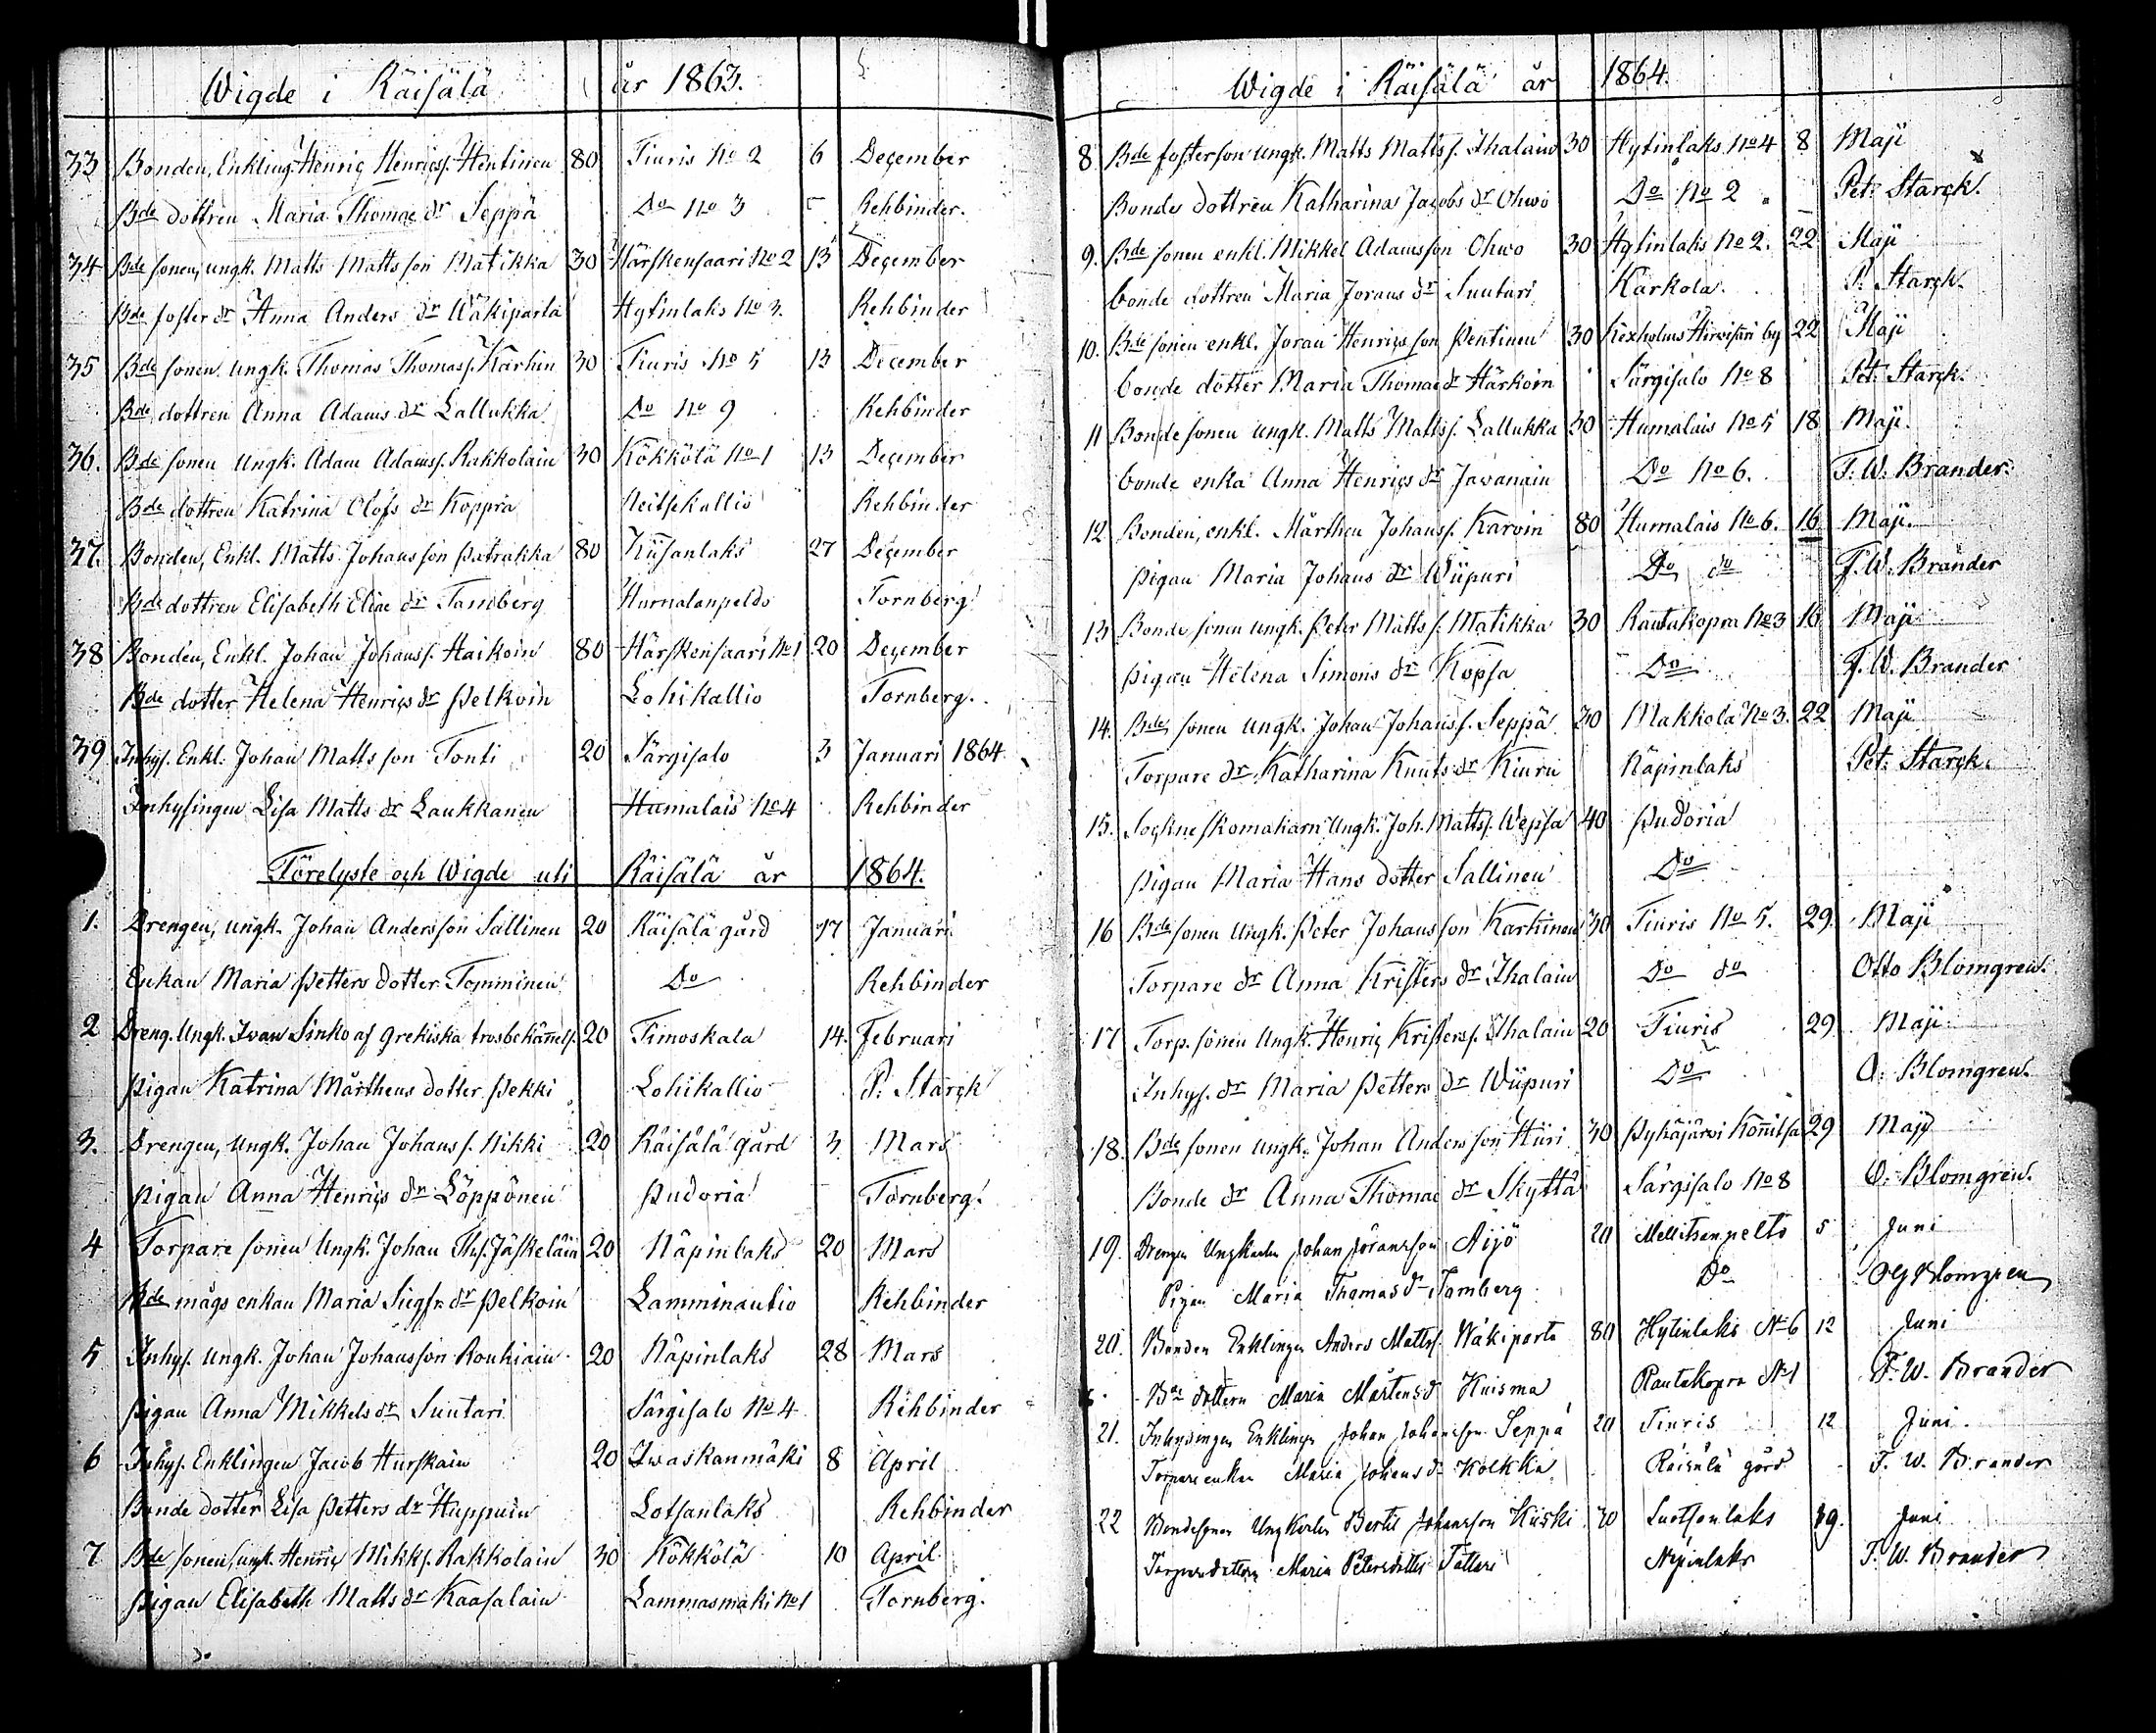 Wigde i Räisälä år 1863.
33 Bonden, Enkling. Henric Henricss. Hentinen 80 Tiuris No 2 6 December
Bde dottren Maria Thomae dr Seppä Do No 3 Rehbinder.
34 Bde sonen, ungk. Matts Mattsson Matikka 30 Härskensaari No 2 13 December
Bde foster dr Anna Anders dr Wäkiparta Hytinlaks No 3. Rehbinder
35 Bde sonen ungk. Thomas Thomass. Karhin 30 Tiuris No 5 13 December
Bde dottren Anna Adams dr Lallukka Do No 9 Rehbinder
36. Bde sonen Ungk. Adam Adamss. Rakkolain 30 Kökkölä No 1 13 December
Bde dottren Katrina Olofs dr Koppra Neitsekallio Rehbinder
37. Bonden, Enkl. Matts Johansson Patrakka 80 Kiisanlaks 27 December
Bde dottren Elisabeth Eliae dr Tamberg Humalanpeldo Tornberg
38 Bonden, Enkl. Johan Johanss. Haikoin 80 Härskensaari No 1 20 December
Bde dotter Helena Henrics dr Pelkoin Lohikallio Tornberg.
39 Inhys. Enkl. Johan Mattsson Tonti 20 Särgisalo 3 Januari 1864
Inhysingen Lisa Matts dr Laukkanen Humalais No 4 Rehbinder
Förelyste och Wigde uti Räisälä år 1864.
1. Drengen, ungk. Johan Andersson Sallinen 20 Räisälä gård 17 Januari
Enkan Maria Petters dotter Tomminen Do Rehbinder
2 Dreng. Ungk. Iwan Sinko af Grekiska trosbekännels. 20 Timoskala 14. Februari
Pigan Katrina Mårthens dotter Pekki Lohikallio P. Starck
3. Drengen, Ungk. Johan Johans s. Nikki 20 Räisälä gård 3 Mars
Pigan Anna Henrics dr Löppönen Pudoria Tornberg.
4 Torpare sonen Ungk. Johan Ths. Jäskeläin 20 Näpinlaks 20 Mars
Bde mågs enkan Maria Siegfr. dr Pelkoin Lamminautio Rehbinder
5 Inhys. ungk. Johan Johansson Roukiain 20 Näpinlaks 28 Mars
Pigan Anna Mikkels dr Suutari Särgisalo No 4 Rehbinder
6 Inhys. Enklingen Jacob Hurskain 20 Iwaskanmäki 8 April
Bonde dotter Lisa Petters dr Huppuin Lotsanlaks Rehbinder
7 Bde sonen ungk. Henric Mikks. Rakkolain 30 Kökkölä 10 April.
Pigan Elisabeth Matts dr Kaasalain Lammasmäki No 1 Tornberg.
Wigde i Räisälä år 1864.
8. Bde fosterson ungk. Matts Matts s. Ihalain 30 Hytinlaks No 4 8 Maji
Bondes dottren Katharina Jacobs dr Ohwo Do No 2 Pet. Starck.
9. Bde sonen enkl. Mikkel Adamsson Ohwo 30 Hytinlaks No 2. 22 Maji
bonde dottren Maria Jorans dr Suutari Kärkola. P. Starck.
10. Bde sonen enkl. Joran Henricsson Pentinen 30 Kexholms Hirvisari by 22 Maji
bonde dotter Maria Thomae dr Härkoin Särgisalo No 8 Pet. Starck.
11 Bonde sonen ungk. Matts Matts s. Lallukka 30 Humalais No 5 18 Maji.
bonde enka Anna Henrics dr Jawanain Do No 6. F. W. Brander.
12 Bonden, enkl. Mårthen Johanss. Karoin 80 Humalais No 6. 16 Maji.
Pigan Maria Johans dr Wiipuri Do do F. W. Brander
13 Bonde sonen ungk. Peter Matts s. Matikka 30 Rautakopra No 3 16 Maji
Pigan Helena Simons dr Kopsa Do F. W. Brander
14. Bde sonen ungk. Johan Johans s. Seppä 30 Makkola No 3. 22 Maji
Torpare dr Katharina Knuts dr Kiuru Näpinlaks Pet. Starck.
15. Sockne skomakarn Ungk. Joh. Matts s. Wepsa 40 Pudoria
Pigan Maria Hans dotter Sallinen Do
16 Bde sonen Ungk. Peter Johansson Karhinen 30 Tiuris No 5. 29. Maji
Torpare dr Anna Kristers dr Ihalain Do do Otto Blomgren.
17 Torp. sonen Ungk. Henric Kristers s. Ihalain 20 Tiuris 29. Maji
Inhys. dr Maria Petters dr Wiipuri Do O. Blomgren.
18. Bde sonen ungk. Johan Andersson Hiiri 30 Pyhäjärvi Konnitsa 29 Maji
Bonde dr Anna Thomae dr Skyttä Särgisalo No 8 O. Blomgren.
19. Drengen Ungkarlen Johan Jöransson Äijö 20 Mellitsanpelto 5 Juni
Pigan Maria Thomas dr Tamberg Do O Blomgren
20. Bonden Enklingen Anders Mattss. Wäkiparta 80 Hytinlaks No 6 12 Juni
Bde dottern Maria Mårtens d Huisma Rautakopra No 1 F. W. Brander
21. Inhysingen Enklingen Johan Johansson Seppä 20 Tiuris 12 Juni.
Torpareenkan Maria Johans dr Kolkka Räisälä gård F. W. Brander
22 Bondesonen Ungkarlen Bertil Johansson Kiiski 30 Luotsonlaks 19. Juni
Torparedottern Maria Petersdotter Tattari Näpinlaks F. W. Brander